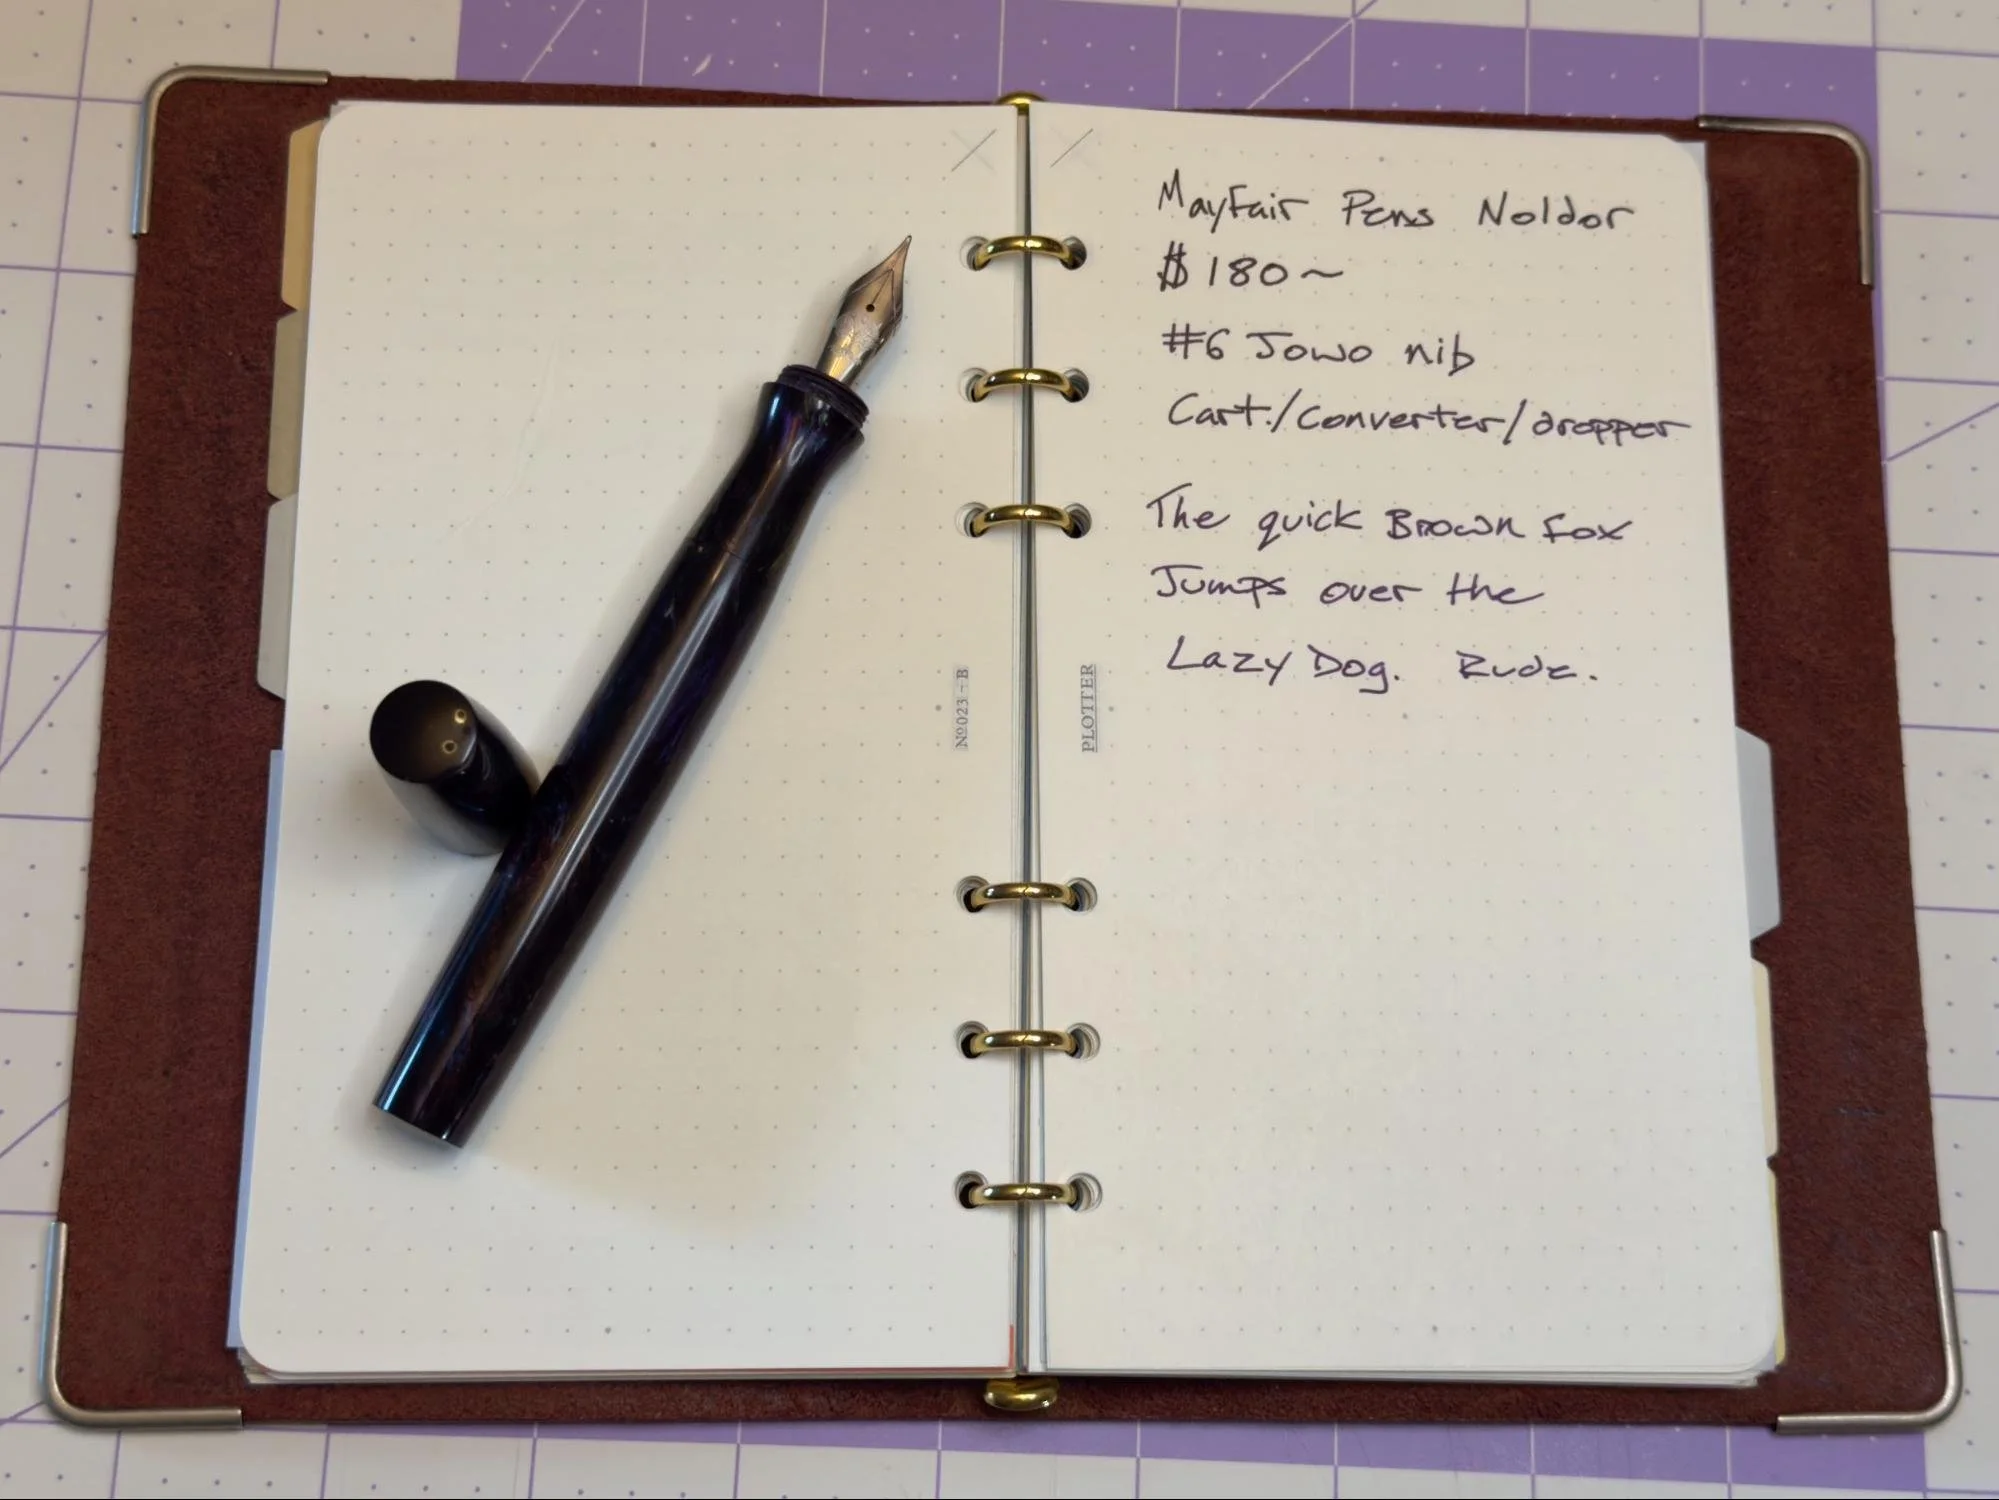 MayFair Pens Noldor
$180~
#6 Jowo nib
Cart./converter/dropper
The quick Brown fox
Jumps over the
Lazy Dog. Rude.
Nº023-B
PLOTTER